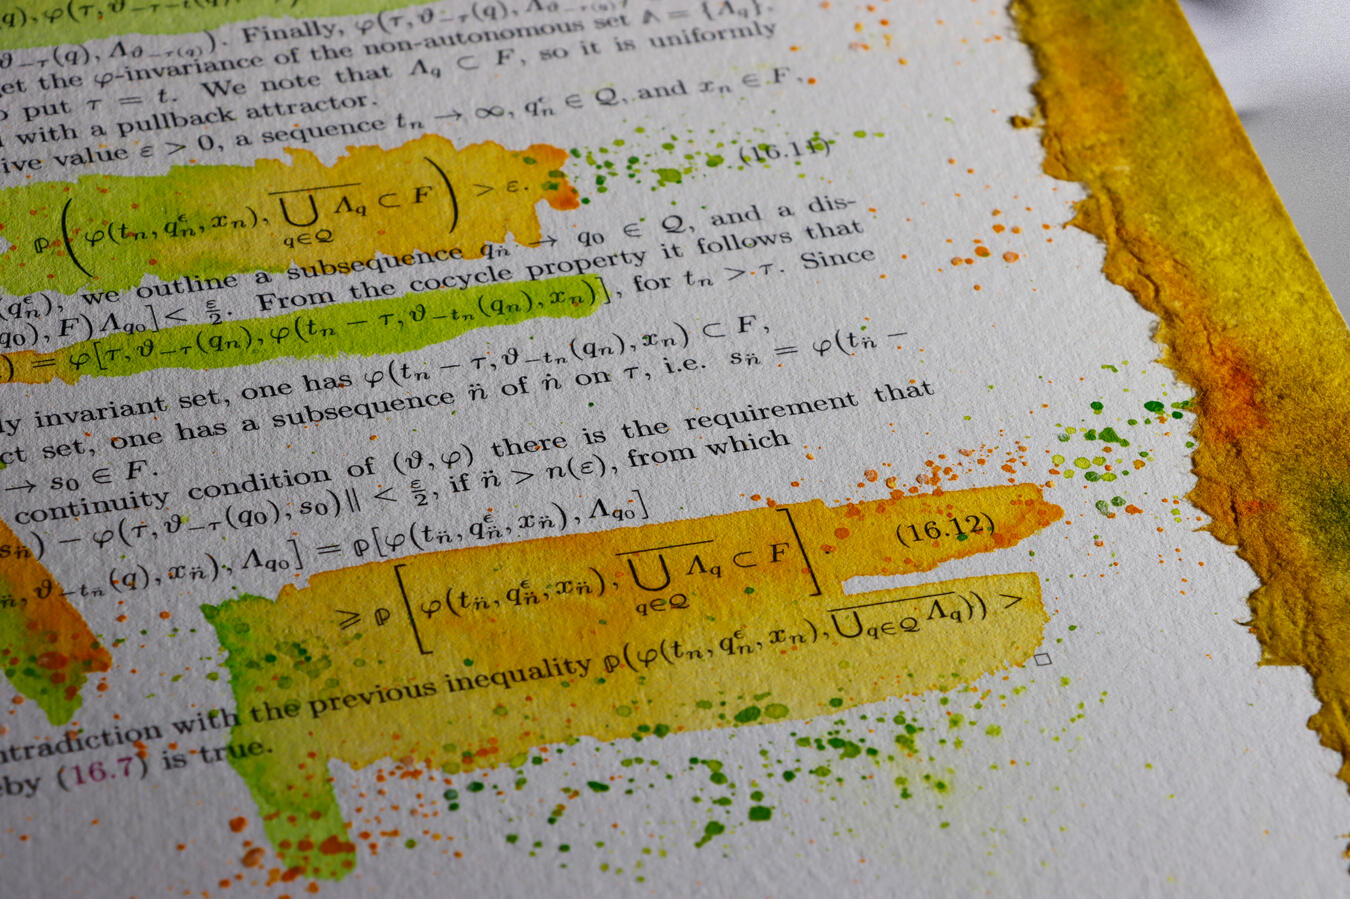 q), φ(τ, ϑ₋τ₋t(q),
ϑ₋τ(q), Λ_{ϑ₋τ(q)}). Finally, φ(τ, ϑ₋τ(q), Λ_{ϑ₋τ(q)}
et the φ-invariance of the non-autonomous set Λ = {Λ_q}.
o put τ = t. We note that Λ_q ⊂ F, so it is uniformly
d with a pullback attractor.
ive value ε > 0, a sequence tₙ → ∞, qₙ^ϵ ∈ Q, and xₙ ∈ F,
ℙ ( φ(tₙ, qₙ^ϵ, xₙ), \overline{⋃_{q∈Q} Λ_q} ⊂ F ) > ε. (16.11)
(qₙ^ϵ), we outline a subsequence q_{n̈} → q₀ ∈ Q, and a dis-
q₀), F) Λ_{q₀}] < ε/2. From the cocycle property it follows that
) = φ[τ, ϑ₋τ(qₙ), φ(tₙ − τ, ϑ_{−tₙ}(qₙ), xₙ)], for tₙ > τ. Since
ly invariant set, one has φ(tₙ − τ, ϑ_{−tₙ}(qₙ), xₙ) ⊂ F,
ct set, one has a subsequence n̈ of ṅ on τ, i.e. s_{n̈} = φ(t_{n̈} −
→ s₀ ∈ F.
continuity condition of (ϑ, φ) there is the requirement that
s_{n̈}) − φ(τ, ϑ₋τ(q₀), s₀)‖ < ε/2, if n̈ > n(ε), from which
n̈, ϑ_{−t_{n̈}}(q), x_{n̈}), Λ_{q₀}] = ℙ[φ(t_{n̈}, q_{n̈}^ϵ, x_{n̈}), Λ_{q₀}]
⩾ ℙ [ φ(t_{n̈}, q_{n̈}^ϵ, x_{n̈}), \overline{⋃_{q∈Q} Λ_q} ⊂ F ] (16.12)
ntradiction with the previous inequality ℙ(φ(tₙ, qₙ^ϵ, xₙ), \overline{⋃_{q∈Q} Λ_q})) >
eby (16.7) is true. □